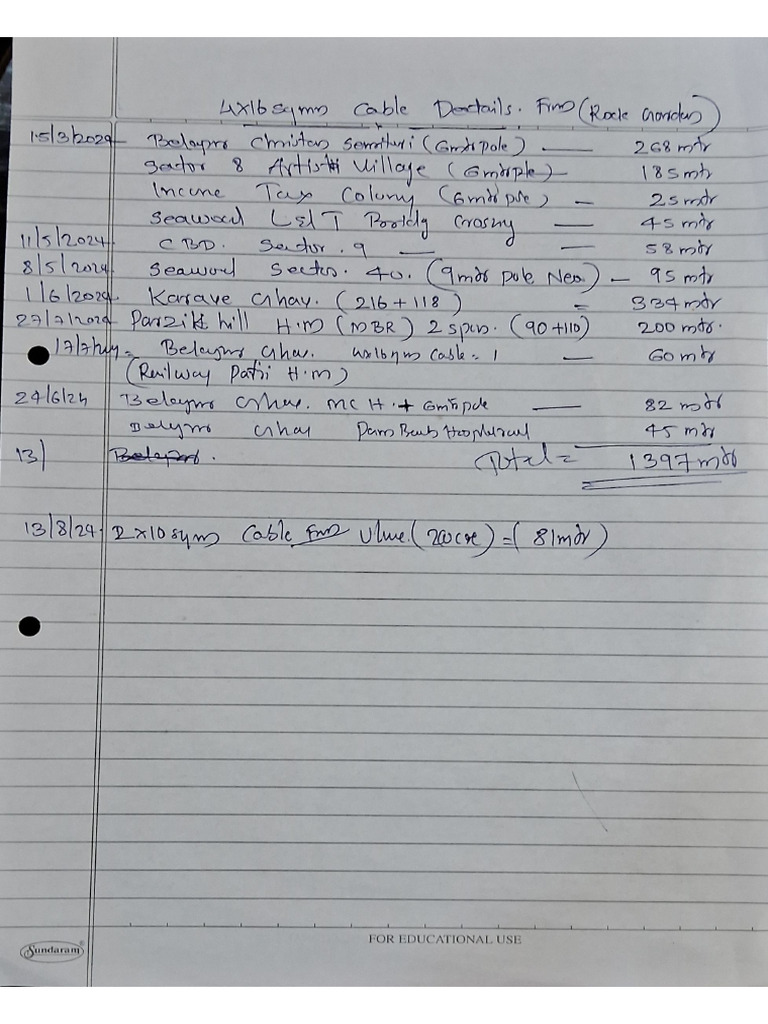 4x16 sqmm Cable Deatails. From (Rock Garden)
15/3/2024 Belapur Christan Semitури (6mtr pole) — 268 mtr
Sector 8 Artist Village (6mtr ple) — 185 mtr
Income Tax Colony (6mtr pole) — 25 mtr
Seawood L&T Crosng — 45 mtr
11/5/2024 CBD. Sector. 9 — — 58 mtr
8/5/2024 Seawood Sector. 40. (9mtr pole Near) — 95 mtr
1/6/2024. Karave Ghav. (216 + 118) = 334 mtr
27/7/2024 Parzik hill H.M (MBR) 2 span. (90+110) 200 mtr.
17/7/24 = Belapur Ghav. 4x16 sqm Cable = 1 — 60 mtr
(Railway Patri H.M)
24/6/24 Belapur Ghav. mc H. + 6mtr pole — 82 mtr
Belapur Ghav 45 mtr
13/ Belapur. Total = 1397 mtr
13/8/24. 2x10 sqmm Cable From (200) = (81 mtr)
Sundaram®
FOR EDUCATIONAL USE